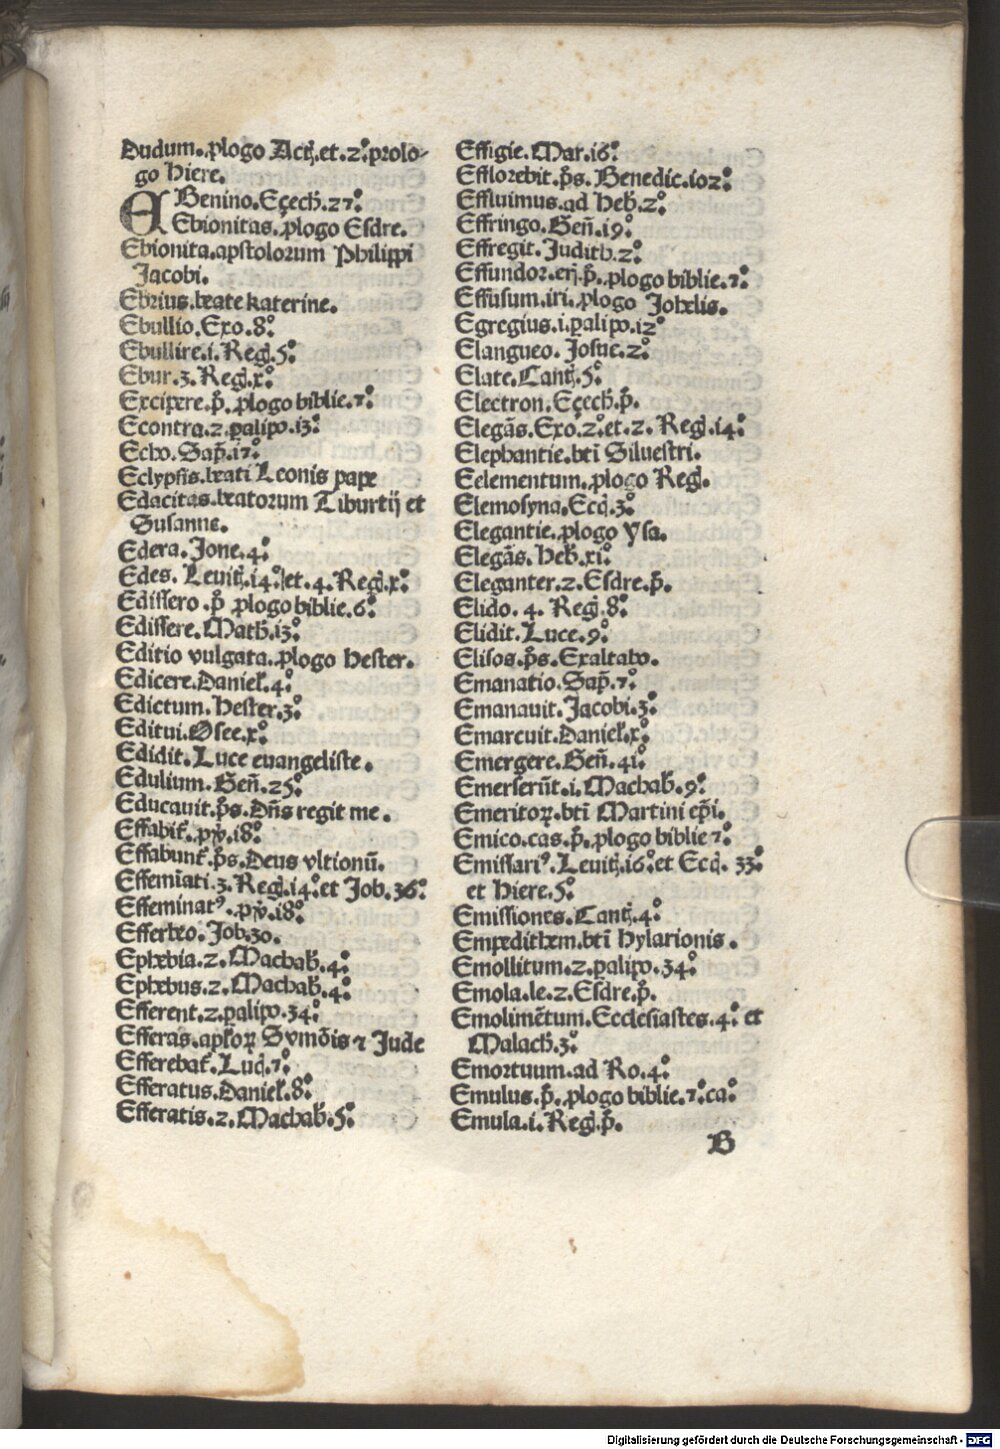 Dudum. ꝓlogo Actꝭ. et. 2.º prolo-
go Hiere.
EBenino. Eçech̄. 27º.
Ebionitas. ꝓlogo Esdre.
Ebionita. apstolorum Philippi
Jacobi.
Ebrius. beate katerine.
Ebullio. Exo. 8º.
Ebullire. i. Regꝭ. 5º.
Ebur. 3. Regꝭ. xº.
Excipere. p̄. ꝓlogo biblie. 7º.
Econtra. 2. ꝑalipo. 13º.
Echo. Sap̄. 17º.
Eclypsis. beati Leonis pape
Edacitas. beatorum Tiburtij et
Susanne.
Edera. Jone. 4º.
Edes. Leuitꝭ. 14º. et. 4. Regꝭ. xº.
Edissero. p̄ ꝓlogo biblie. 6º.
Edissere. Math̄. 13º.
Editio vulgata. ꝓlogo Hester.
Edicere. Danieł. 4º.
Edictum. Hester. 3º.
Editui. Osee. xº.
Edidit. Luce euangeliste.
Edulium. Geñ. 25º.
Educauit. p̄s. Dn̄s regit me.
Effabit̄. 18º.
Effabunt̄. p̄s. Deus vltionū.
Effemīati. 3. Regꝭ. 14º. et Job. 36º.
Effeminatꝰ. 18º.
Efferbeo. Job. 30.
Ephebia. 2. Machab̄. 4º.
Ephebus. 2. Machab̄. 4º.
Efferent. 2. ꝑalipo. 34º.
Efferas. apłoꝝ Symōis ⁊ Jude
Efferebat̄. Lucꝭ. 7º.
Efferatus. Danieł. 8º.
Efferatis. 2. Machab̄. 5º.
Effigie. Mar. 16º.
Efflorebit. p̄s. Benedic. 102º.
Effluimus. ad Heb̄. 2º.
Effringo. Geñ. 19º.
Effregit. Judith. 2º.
Effundor. eri. p̄. ꝓlogo biblie. 7º.
Effusum. iri. ꝓlogo Johelis.
Egregius. i. ꝑalipo. 12º
Elangueo. Josue. 2º.
Elate. Cantꝭ. 5º.
Electron. Eçech̄. p̄.
Elegās. Exo. 2º. et. 2. Regꝭ. 14º.
Elephantie. bt̄i Siluestri.
Eelementum. ꝓlogo Regꝭ.
Elemosyna. Eccꝭ. 3º.
Elegantie. ꝓlogo Ysa.
Elegās. Heb̄. xiº.
Eleganter. 2. Esdre. p̄.
Elido. 4. Regꝭ. 8º.
Elidit. Luce. 9º.
Elisos. p̄s. Exaltabo.
Emanatio. Sap̄. 7º.
Emanauit. Jacobi. 3º.
Emarcuit. Danieł. xº.
Emergere. Geñ. 41º.
Emerserūt. i. Machab̄. 9º.
Emeritoꝝ. bt̄i Martini ep̄i.
Emico. cas. p̄. ꝓlogo biblie 7º.
Emissariꝰ. Leuitꝭ. 16º. et Eccꝭ. 33º.
et Hiere. 5º.
Emissiones. Cantꝭ. 4º.
Empedithem. bt̄i Hylarionis.
Emollitum. 2. ꝑalipo. 34º.
Emola. le. 2. Esdre. p̄.
Emolimētum. Ecclesiastes. 4º. et
Malach̄. 3º.
Emortuum. ad Ro. 4º.
Emulus. p̄. ꝓlogo biblie. 7º. caº.
Emula. i. Regꝭ. p̄.
B
Digitalisierung gefördert durch die Deutsche Forschungsgemeinschaft - DFG